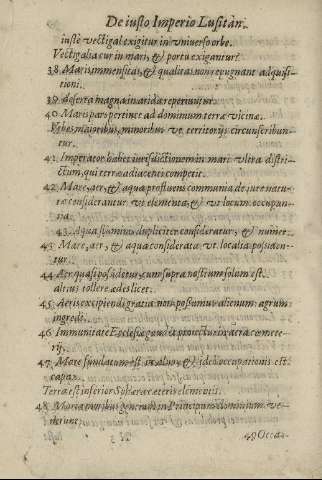 De iusto Imperio Lusitan.
iuste vectigal exigitur in vniuerso orbe.
Vectigalia cur in mari, & portu exigantur?
38. Maris immensitas, & qualitas non repugnant adquisi-
tioni.
39. deserta magna in aridà reperiuntur.
40. Maris pars pertinet ad dominium terræ vicinæ.
Vrbes maioribus, minoribus ve territorijs circunscribun-
tur.
41. Imperator habet iurisdictionem in mari vltra distri-
ctum, qui terræ adiacenti competit.
42. Mare, aer, & aqua profluens communia de iure natu-
ræ considerantur vt elementa, & vt locum occupan-
tia.
43. Aqua fluminis dupliciter consideratur, & numer.
43. Mare, aer, & aqua considerata vt localia possiden-
tur.
44. Aer quasi possidetur, cum supra nostrum solum est.
altius tollere ædes licet.
45. Aeris excipiendi gratia non possumus alienum agrum
ingredi.
46. Immunitate Ecclesiæ gaudet in aera cœmete-
rij.
47. Mare fundatum est in alueo, & ideò occupationis est
capax.
Terra est inferior Sphæra cæteris elementis.
48. Maria moribus generum in Principum dominium ve-
nerunt.
49 Occa-